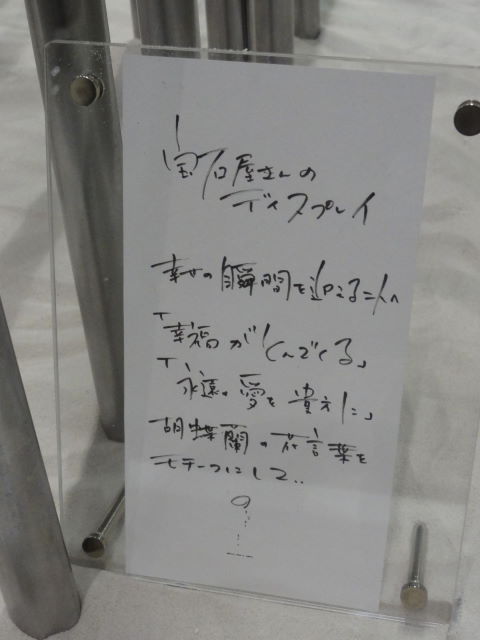 宝石屋さんの
ディスプレイ
幸せの瞬間を迎える二人へ
「幸福がとんでくる」
「永遠の愛を貴方に」
胡蝶蘭の花言葉を
モチーフにして..